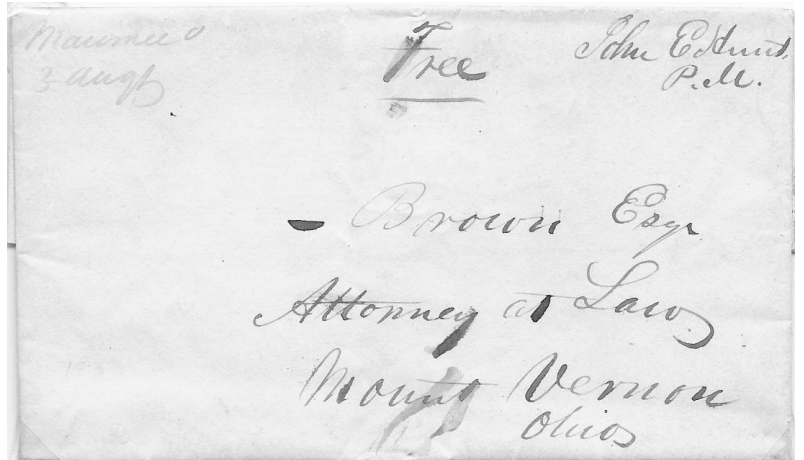 Maumee O
3 Augt
Free
John E Hunt
P.M.
- Brown Esqr
Attorney at Law
Mount Vernon
Ohio